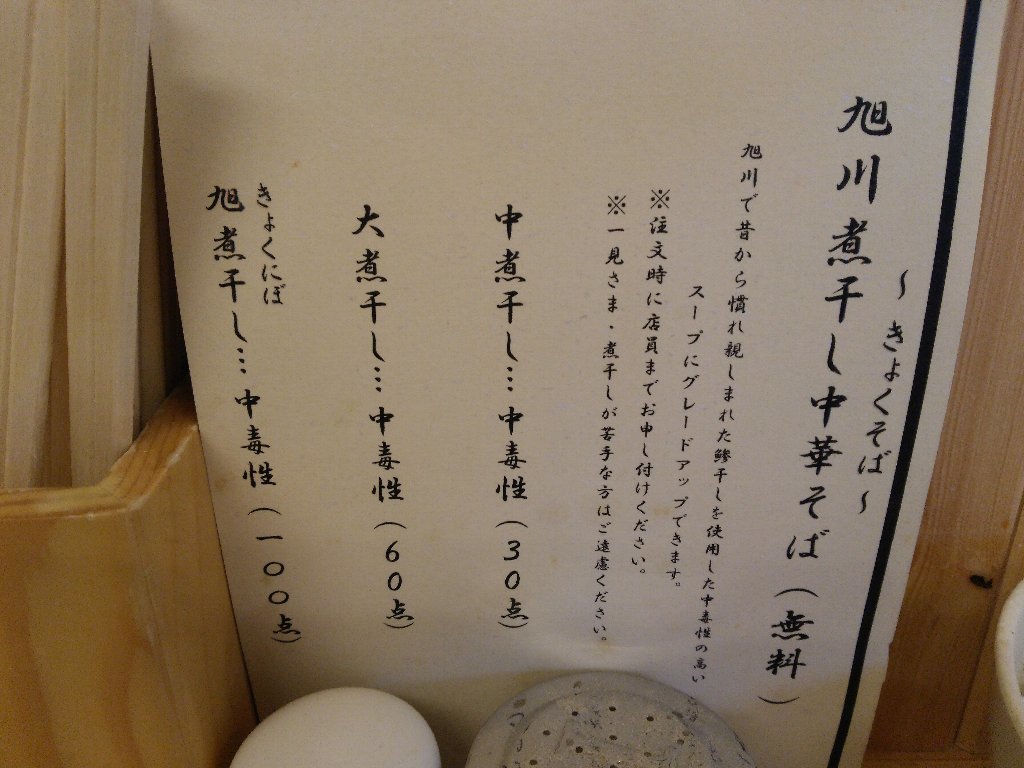 ～きょくそば～
旭川煮干し中華そば（無料）
旭川で昔から慣れ親しまれた鯵干しを使用した中毒性の高い
スープにグレードアップできます。
※注文時に店員までお申し付けください。
※一見さま・煮干しが苦手な方はご遠慮ください。
中煮干し…中毒性（30点）
大煮干し…中毒性（60点）
きょくにぼ
旭煮干し…中毒性（一〇〇点）